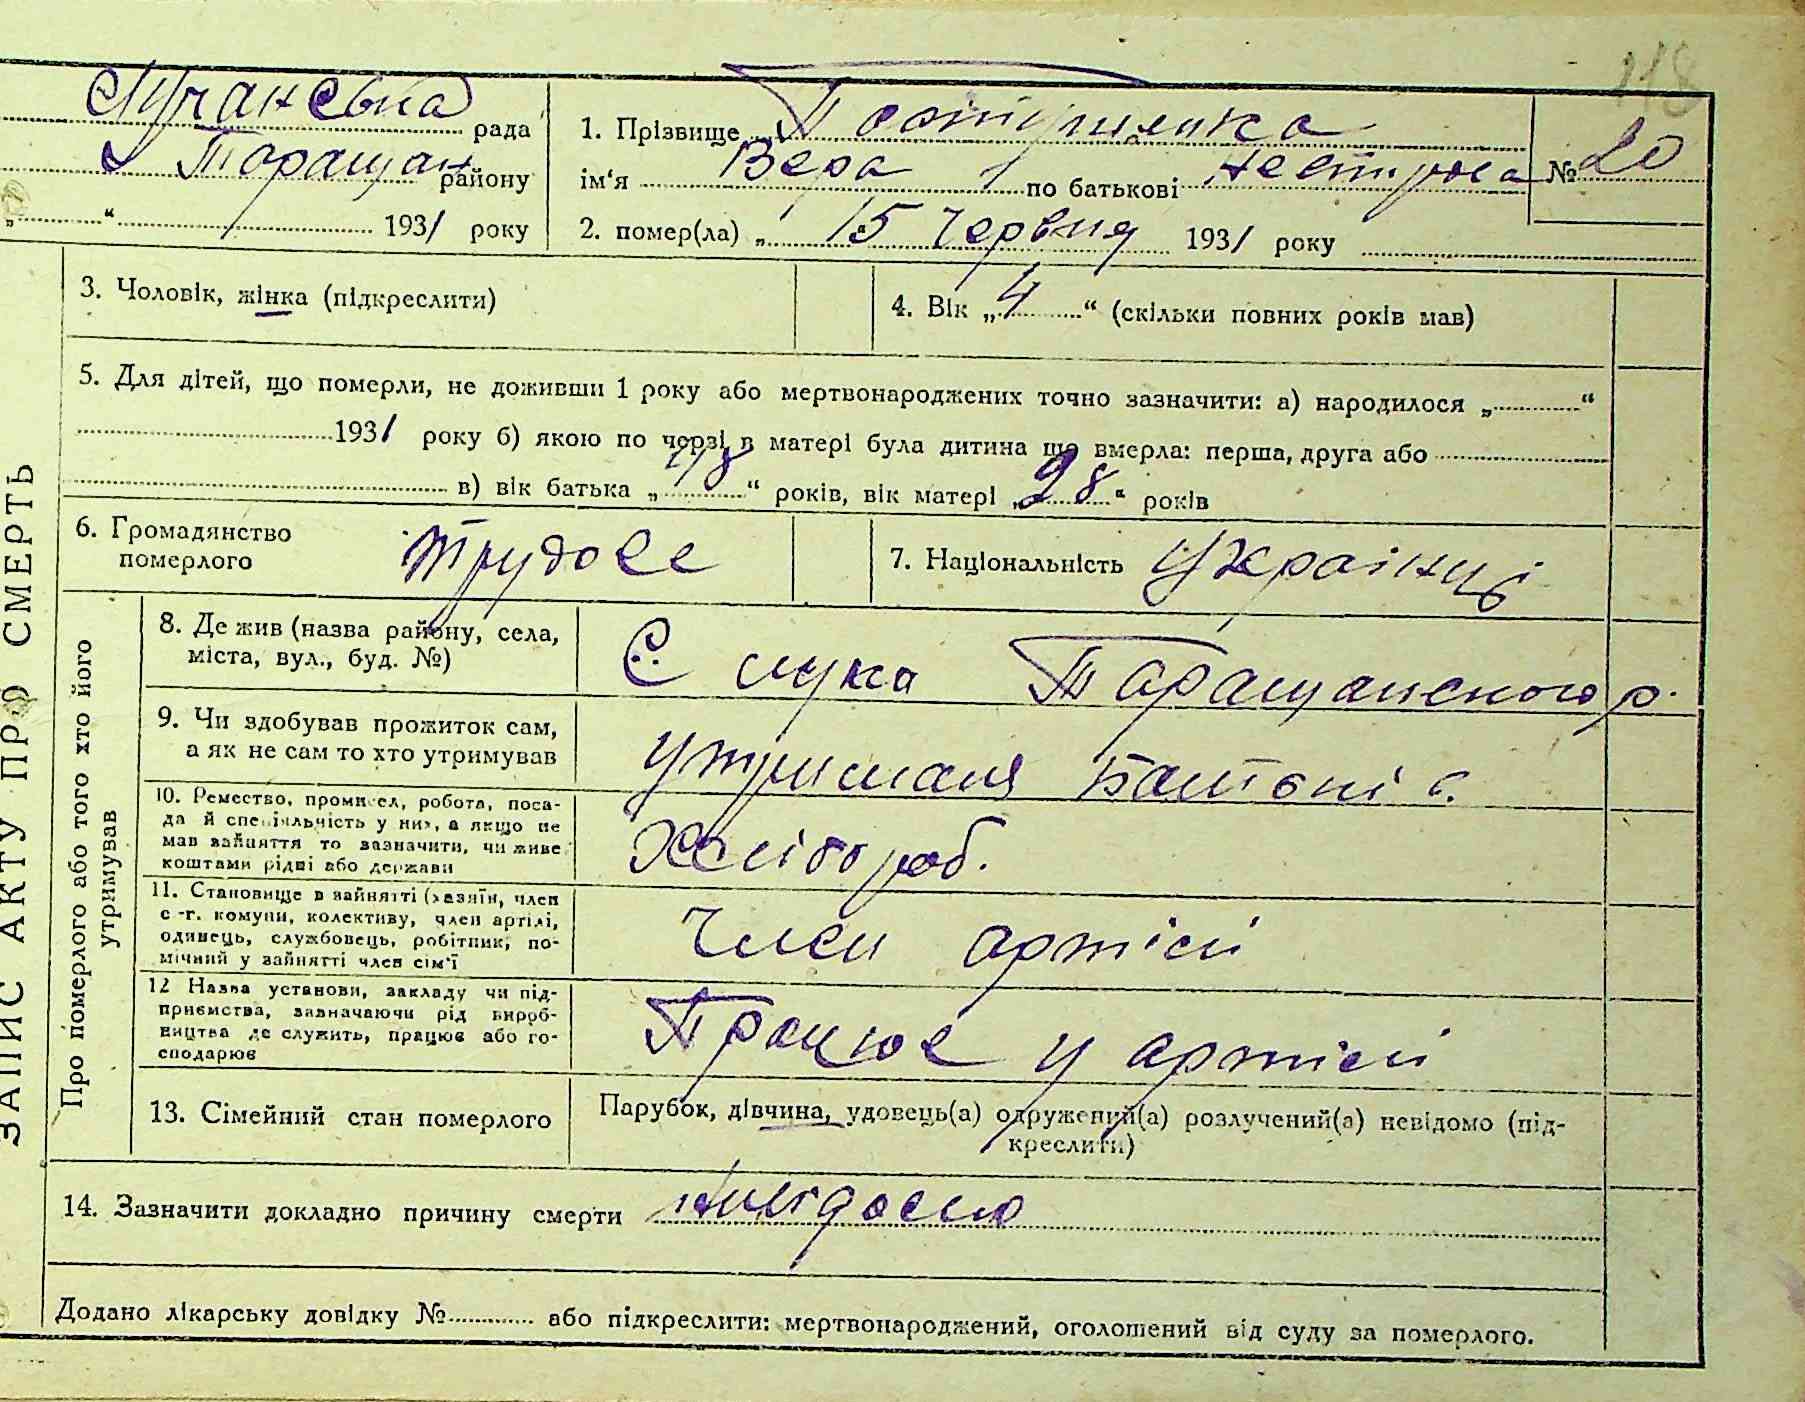 118
Лучанська рада
Таращан району
„ “ 1931 року
1. Прізвище
ім‘я Вера по батькові №20
2. помер(ла) „ 15 червня 1931 року
3. Чоловік, жінка (підкреслити)
4. Вік „4“ (скільки повних років мав)
5. Для дітей, що померли, не доживши 1 року або мертвонароджених точно зазначити: а) народилося „ “
1931 року б) якою по черзі в матері була дитина що вмерла: перша, друга або
в) вік батька „ “ років, вік матері „28“ років
6. Громадянство
померлого
7. Національність Українці
ЗАПИС АКТУ ПРО СМЕРТЬ
Про померлого або того хто його
утримував
8. Де жив (назва району, села,
міста, вул., буд. №)
С лука Таращанского р.
9. Чи здобував прожиток сам,
а як не сам то хто утримував
10. Ремество, промисел, робота, поса-
да й спеціяльність у них, а якщо не
мав зайняття то зазначити, чи живе
коштами рідні або держави
Хлібороб.
11. Становище в зайнятті (хазяїн, член
с-г. комуни, колективу, член артілі,
одинець, службовець, робітник, по-
мічний у зайнятті член сім‘ї
Член артілі
12 Назва установи, закладу чи під-
приємства, зазначаючи рід вироб-
ництва де служить, працює або го-
сподарює
Працює у артілі
13. Сімейний стан померлого
Парубок, дівчина, удовець(а) одружений(а) розлучений(а) невідомо (під-
креслити)
14. Зазначити докладно причину смерти
Додано лікарську довідку № або підкреслити: мертвонароджений, оголошений від суду за померлого.